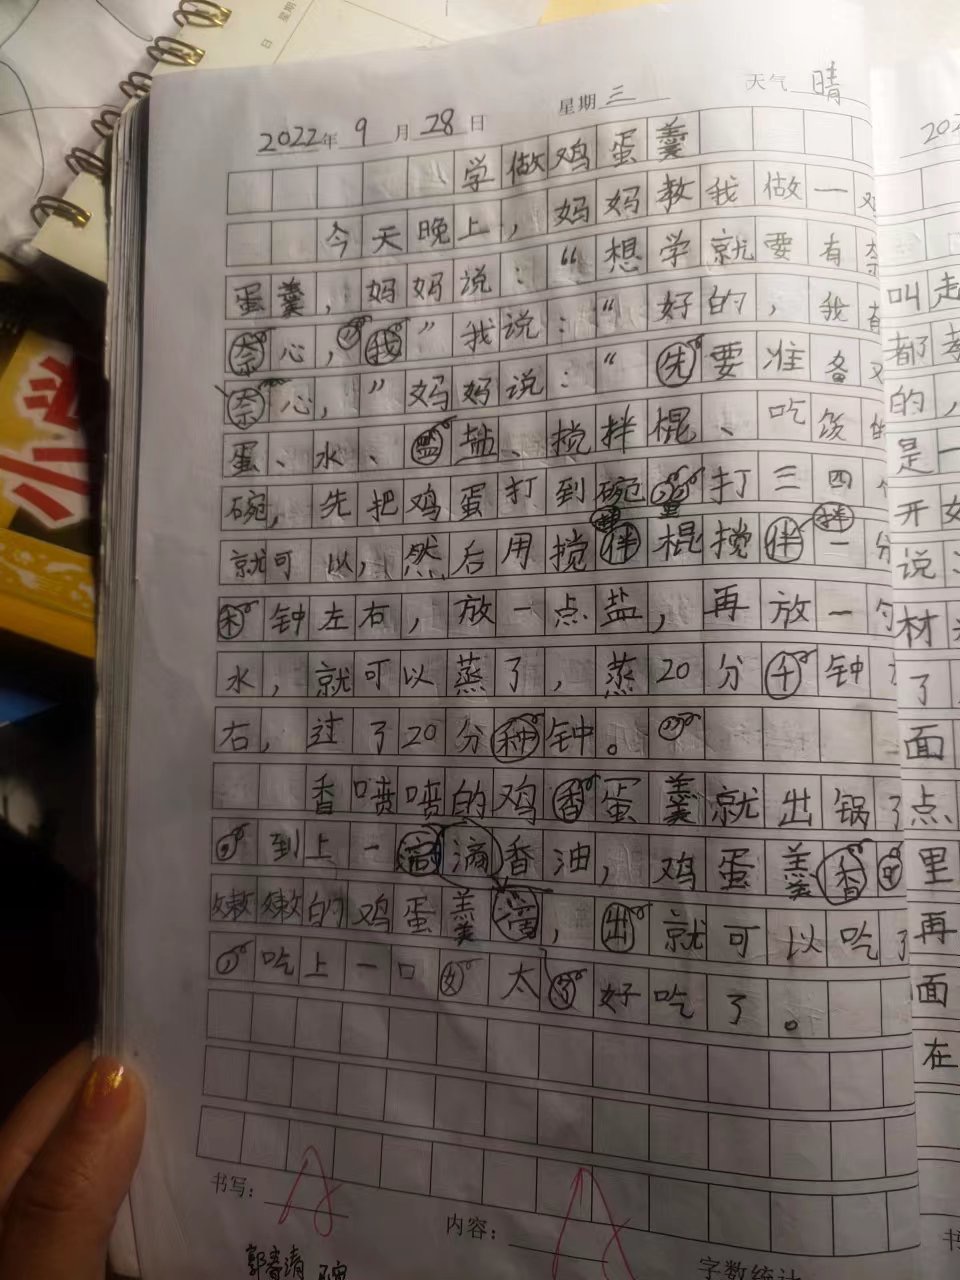 日 星期
2022年 9 月 28 日 星期 三 天气 晴
学做鸡蛋羹
今天晚上，妈妈教我做一
蛋羹，妈妈说：“想学就要有
心，”我说：“好的，我有
心，”妈妈说：“要准备
蛋、水、盐、搅拌棍、吃饭
碗，先把鸡蛋打到碗打三四
就可以，然后用搅拌棍搅拌一分
钟左右，放一点盐，再放一勺
水，就可以蒸了，蒸20分钟
右，过了20分钟。
香喷喷的鸡蛋羹就出锅了
到上一滴香油，鸡蛋羹香
嫩嫩的鸡蛋羹，就可以吃了
吃上一口太好吃了。
书写：
内容：
字数统计
202
叫起
都
的，
是一
开
说
材
了
面
点
里
再
面
在
书